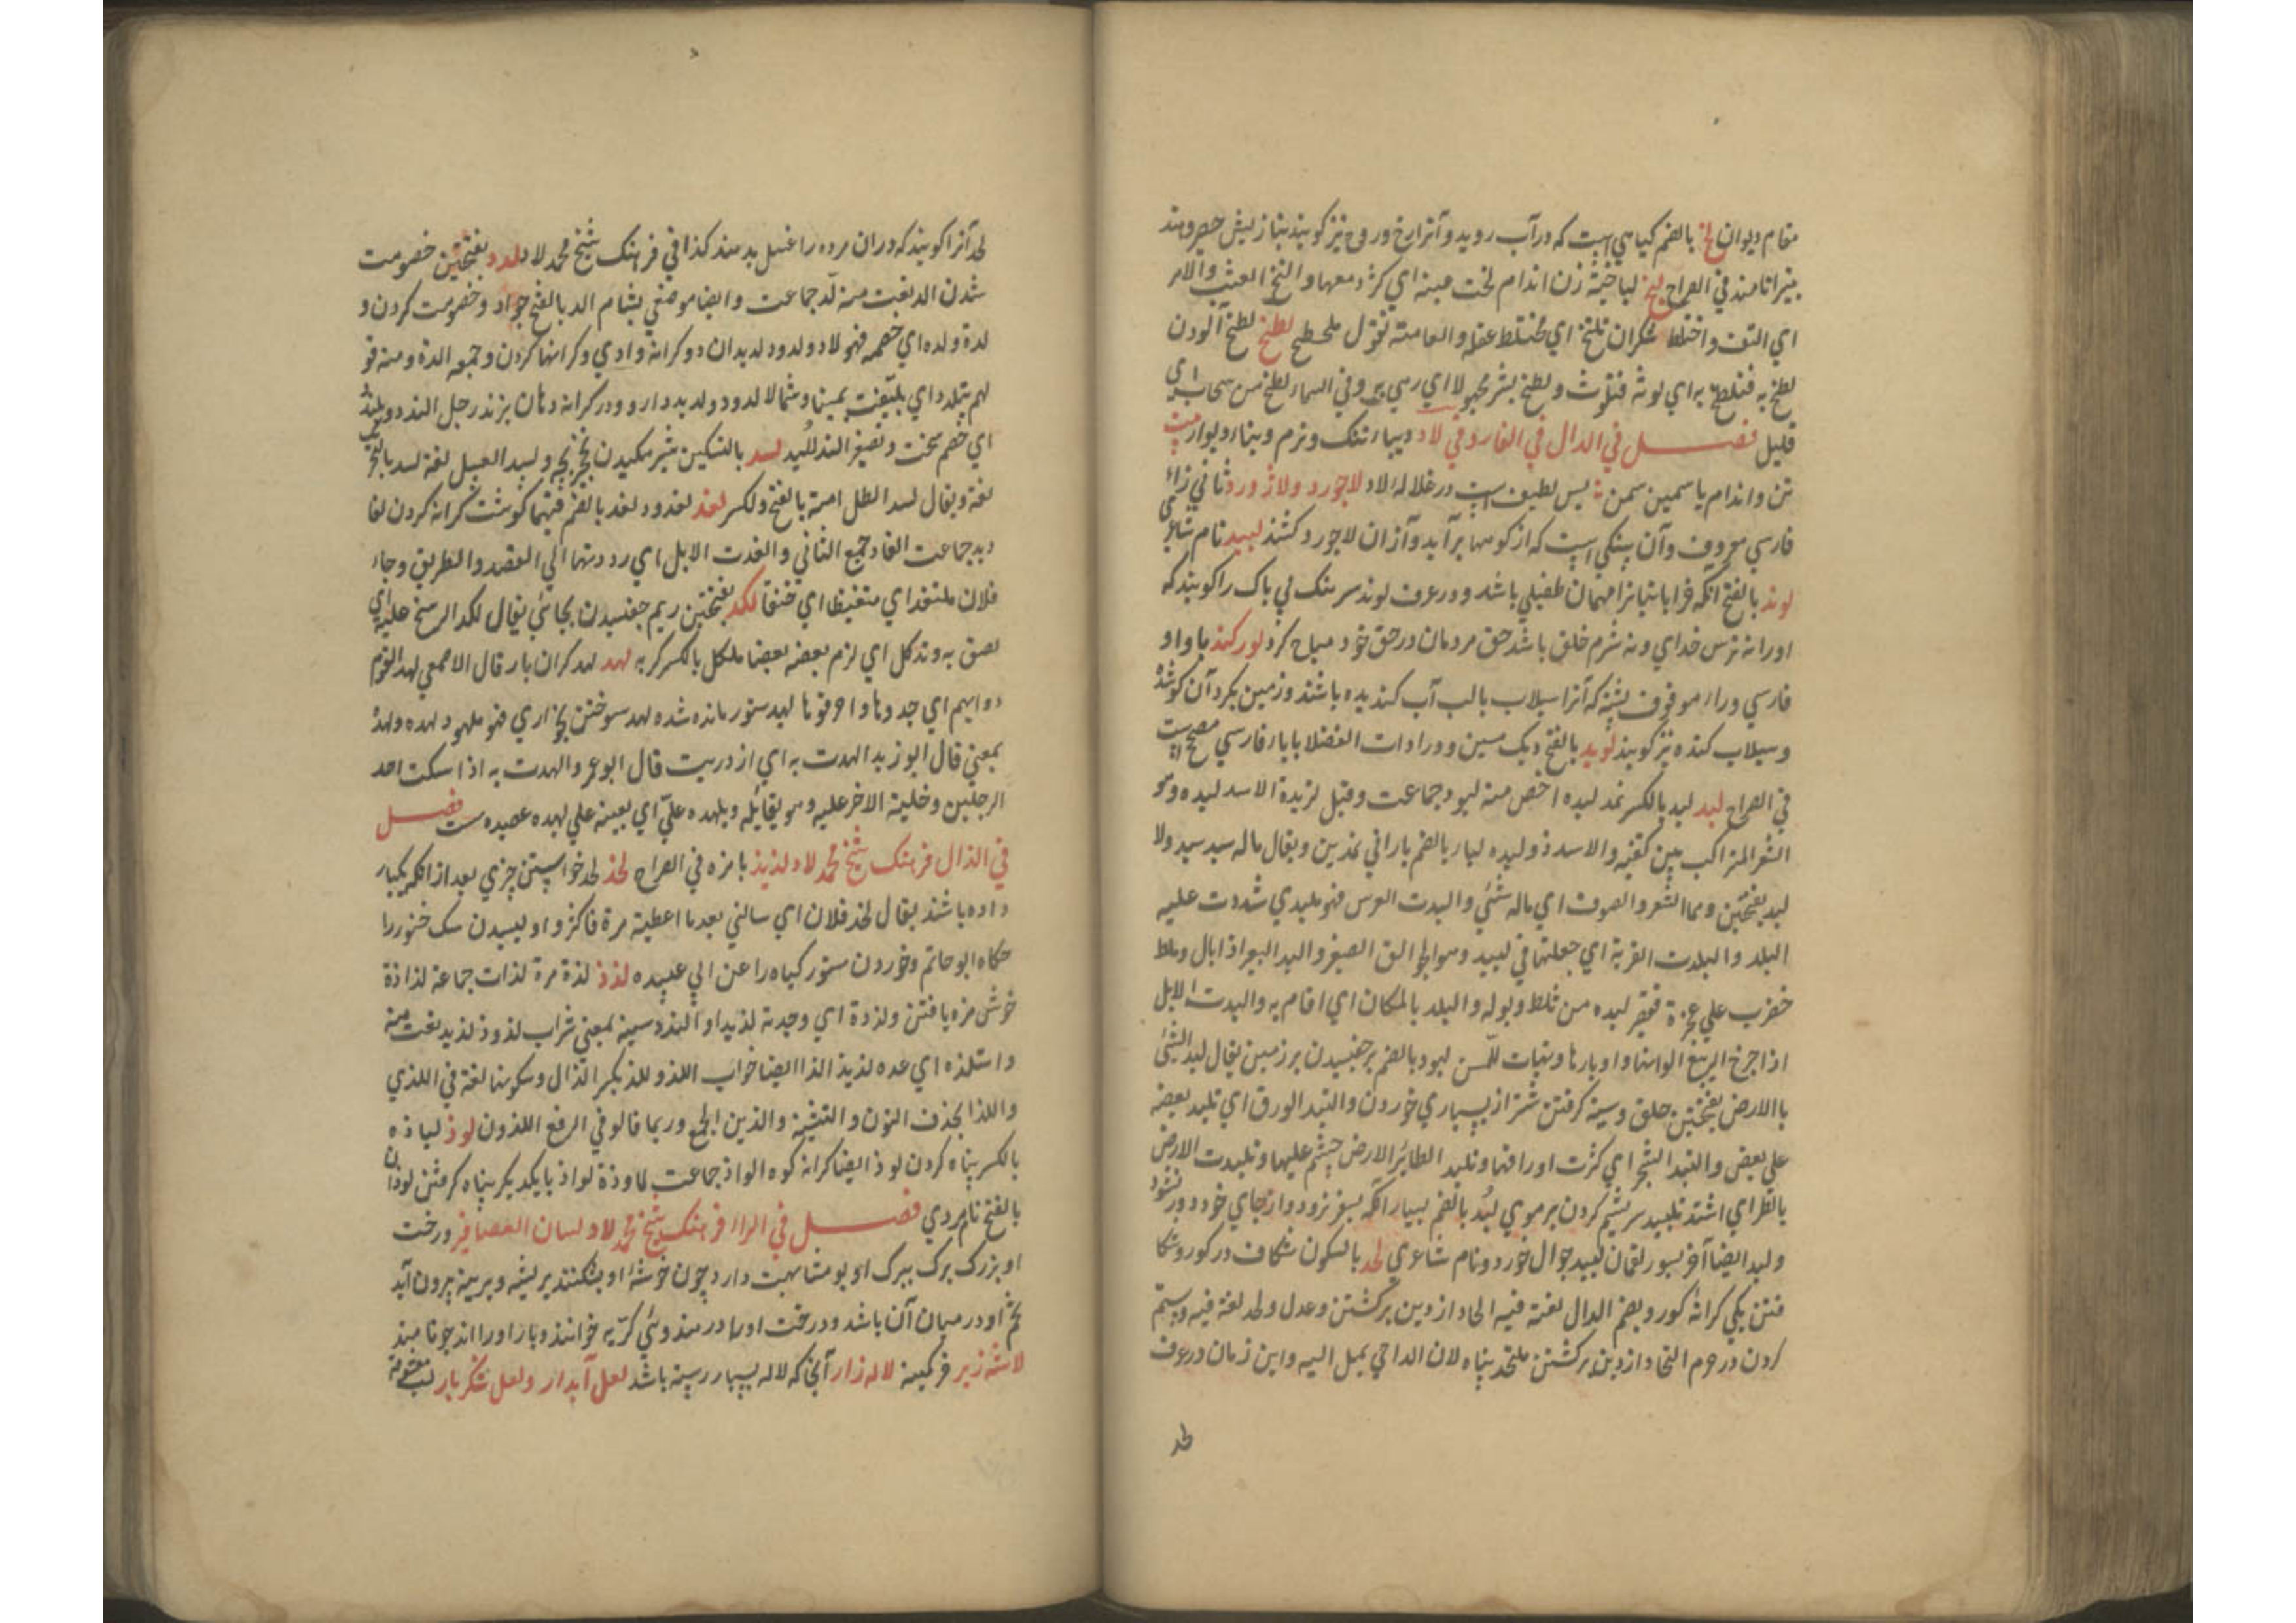 مقام دیوان لخ بالضم کیاهی است که در آب روید و آنرا رخ و روخ نیز کویند بتازیش حصیر و هند
بیترا نامند فی الصراح لخ لباخیة زن اندام لخت عینه ای کثر دمعها و التخ العشب و الامر
ای التف و اختلط سکران ملتخ ای مختلط عقله و العامة تقول ملطخ لطخ لطخ آلودن
لطخ به فتلطخ به ای لوثه فتلوث و لطخ بشر مجهولا ای رمی به و فی السماء لطخ من سحاب ای
قلیل فصل فی الدال فی الفاروقی لاد دیباء تنک و نرم و بناء دیوار بیت
تن و اندام یاسمین سمن بس لطیف است در غلاله لاد لاجورد و لاژورد ثانی زاء
فارسی معروف و آن سنکی است که از کوهها برآید و از آن لاجورد کشند لبید نام شاعری
لوند بالفتح انکه خراباتیانرا مهمان طفیلی باشد و در عرف لوند سرهنک بی باک را کویند که
او را نه ترس خدای و نه شرم خلق باشد حق مردمان در حق خود مباح کرد لورکند با واو
فارسی و راء موقوف پشته که آنرا سیلاب بالب آب کندیده باشند و زمین بکرد آن کو شده
و سیلاب کنده نیز کویند لوید بالفتح دیک مسین و در ادات الفضلا بابا فارسی مصحح است
فی الصراح لبد لبد بالکسر نمد لبده اخص منه لبود جماعت و قیل لزبرة الاسد لبده و هو
الشعر المتراکب بین کتفیه و الاسد ذو لبده لباد بالضم بارانی نمدین و یقال ماله سبد و لا
لبد بفتحتین و هما الشعر و الصوف ای ماله شئ و البدت الفرس فهو ملبد ای شددت علیه
اللبد و البدت القربة ای جعلتها فی لبید و هو الجوالق الصغیر و البد البعیر اذا بال و ثلط
فضرب علی عجزه فیصیر لبده من ثلطه و بوله و البد بالمکان ای اقام به و البدت الابل
اذا اخرج الربیع الوانها و اوبارها و تهیات للسمن لبود بالضم برچفسیدن بر زمین یقال لبد الشئ
باالارض بفتحتین حلق و سینه کرفتن شتر از بسیاری خوردن و التبد الورق ای تلبد بعضه
علی بعض و التبد الشجر ای کثرت اوراقها و تلبد الطائر الارض جثم علیها و تلبدت الارض
بالمطر ای اشتد تلبید سریشم کردن بر موی لبد بالضم بسیار انکه بسفر نرود و از جای خود دور نشود
و لبد ایضا آخر نسور لقمان لبید جوال خورد و نام شاعری لحد بالسکون شکاف در کور و شکا
فتن یکی کرانه کور و بضم الدال لغة فیه الحاد از دین برکشتن و عدل و لحد لغة فیه و ستم
کردن در حرم التحاد از دین برکشتن ملتحد پناه لان اللاجی یمیل الیه و این زمان در عرف
لحد
لحد آنرا کویند که در ان مرده را غسل بدهند کذا فی فرهنک شیخ محمد لاد لدد بفتحتین خصومت
شدن الد نعت منه لد جماعت و ایضا موضعی بشام الد بالفتح جواد و خصومت کردن و
لده و لده ای خصمه فهو لاد و لدود لدیدان دو کرانه وادی و کرانها کردن و جمعه الدة و منه قو
لهم یتلدد ای یلتفت یمینا و شمالا لدود و لدید دارو و در کرانه دهان بزند رجل الندد و یلندد
ای خصم سخت و تصغیر الندد الید لسد بالتسکین شیر مکیدن بچه و لسد العسل لغة لسد بالفتح
لغة و یقال لسد الطل امته بالفتح و الکسر لغد لغدود لغد بالضم فیهما کوشت کرانه کردن لغا
دید جماعت الغاد جمع الثانی و الغدت الابل ای رددتها الی القصد و الطریق و جاء
فلان ملتغدا ای متغیظا ای حنقا لکد بفتحتین ریم چفسیدن بجائی یقال لکد الوسخ علیه ای
لصق به و تلکد ای لزم بعضه بعضا ملکد بالکسر کریه لهد لهد کران بار قال الاصمعی لهد القوم
دوابهم ای جهدوها و احرقوها لهید ستور مانده شده لهد سوختن بخواری فهو ملهود لهده و لهده
بمعنی قال ابو زید الهدت به ای ازدریت قال ابوعمر و الهدت به اذا امسکت احد
الرجلین و خلیت الاخر علیه و هو یقاتله و یلهده علیّ ای یعینه علی لهیده عصیده ست فصل
فی الذال فرهنک شیخ محمد لاد لذیذ بامزه فی الصراح لخذ لخد خواستن چیزی بعد از انکه یکبار
داده باشند یقال لخذ فلان ای سالنی بعد ما اعطیته مرة فاکثر و او لیسیدن سک خنور را
حکاه ابوحاتم و خوردن ستور کیاه را عن ابی عبیده لذذ لذة مرة لذات جماعة لذاذة
خوش مزه یافتن و لذذة ای وجدته لذیذا و التذ و سمیته بمعنی شراب لذ و ذ لذیذ نعت منه
و استلذه ای عده لذیذ الذا ایضا خواب اللذ و للذ بکسر الذال و سکونها لغة فی اللذی
و اللذا بحذف النون و التثنیة و الذین الجمع و ربما قالو فی الرفع اللذون لوذ لیاذه
بالکسر پناه کردن لوذ ایضا کرانه کوه الواذ جماعت ملاوذة لواذ بایکدیکر پناه کرفتن لوذان
بالفتح نام مردی فصل فی الراء فرهنک شیخ محمد لاد لسان العصافیر درخت
او بزرک برک ببرک او بو مشابهت دارد چون خوشه او بشکنند پریشه و پریه بیرون آید
تخم او در میان آن باشد و درخت او را در هندوئی کریه خوانند و بار او را اندر جو نامند
لاشه زیر فرکمینه لاله زار آنجا که لاله بسیار رسته باشد لعل آبدار و لعل شکربار لب معشوقه